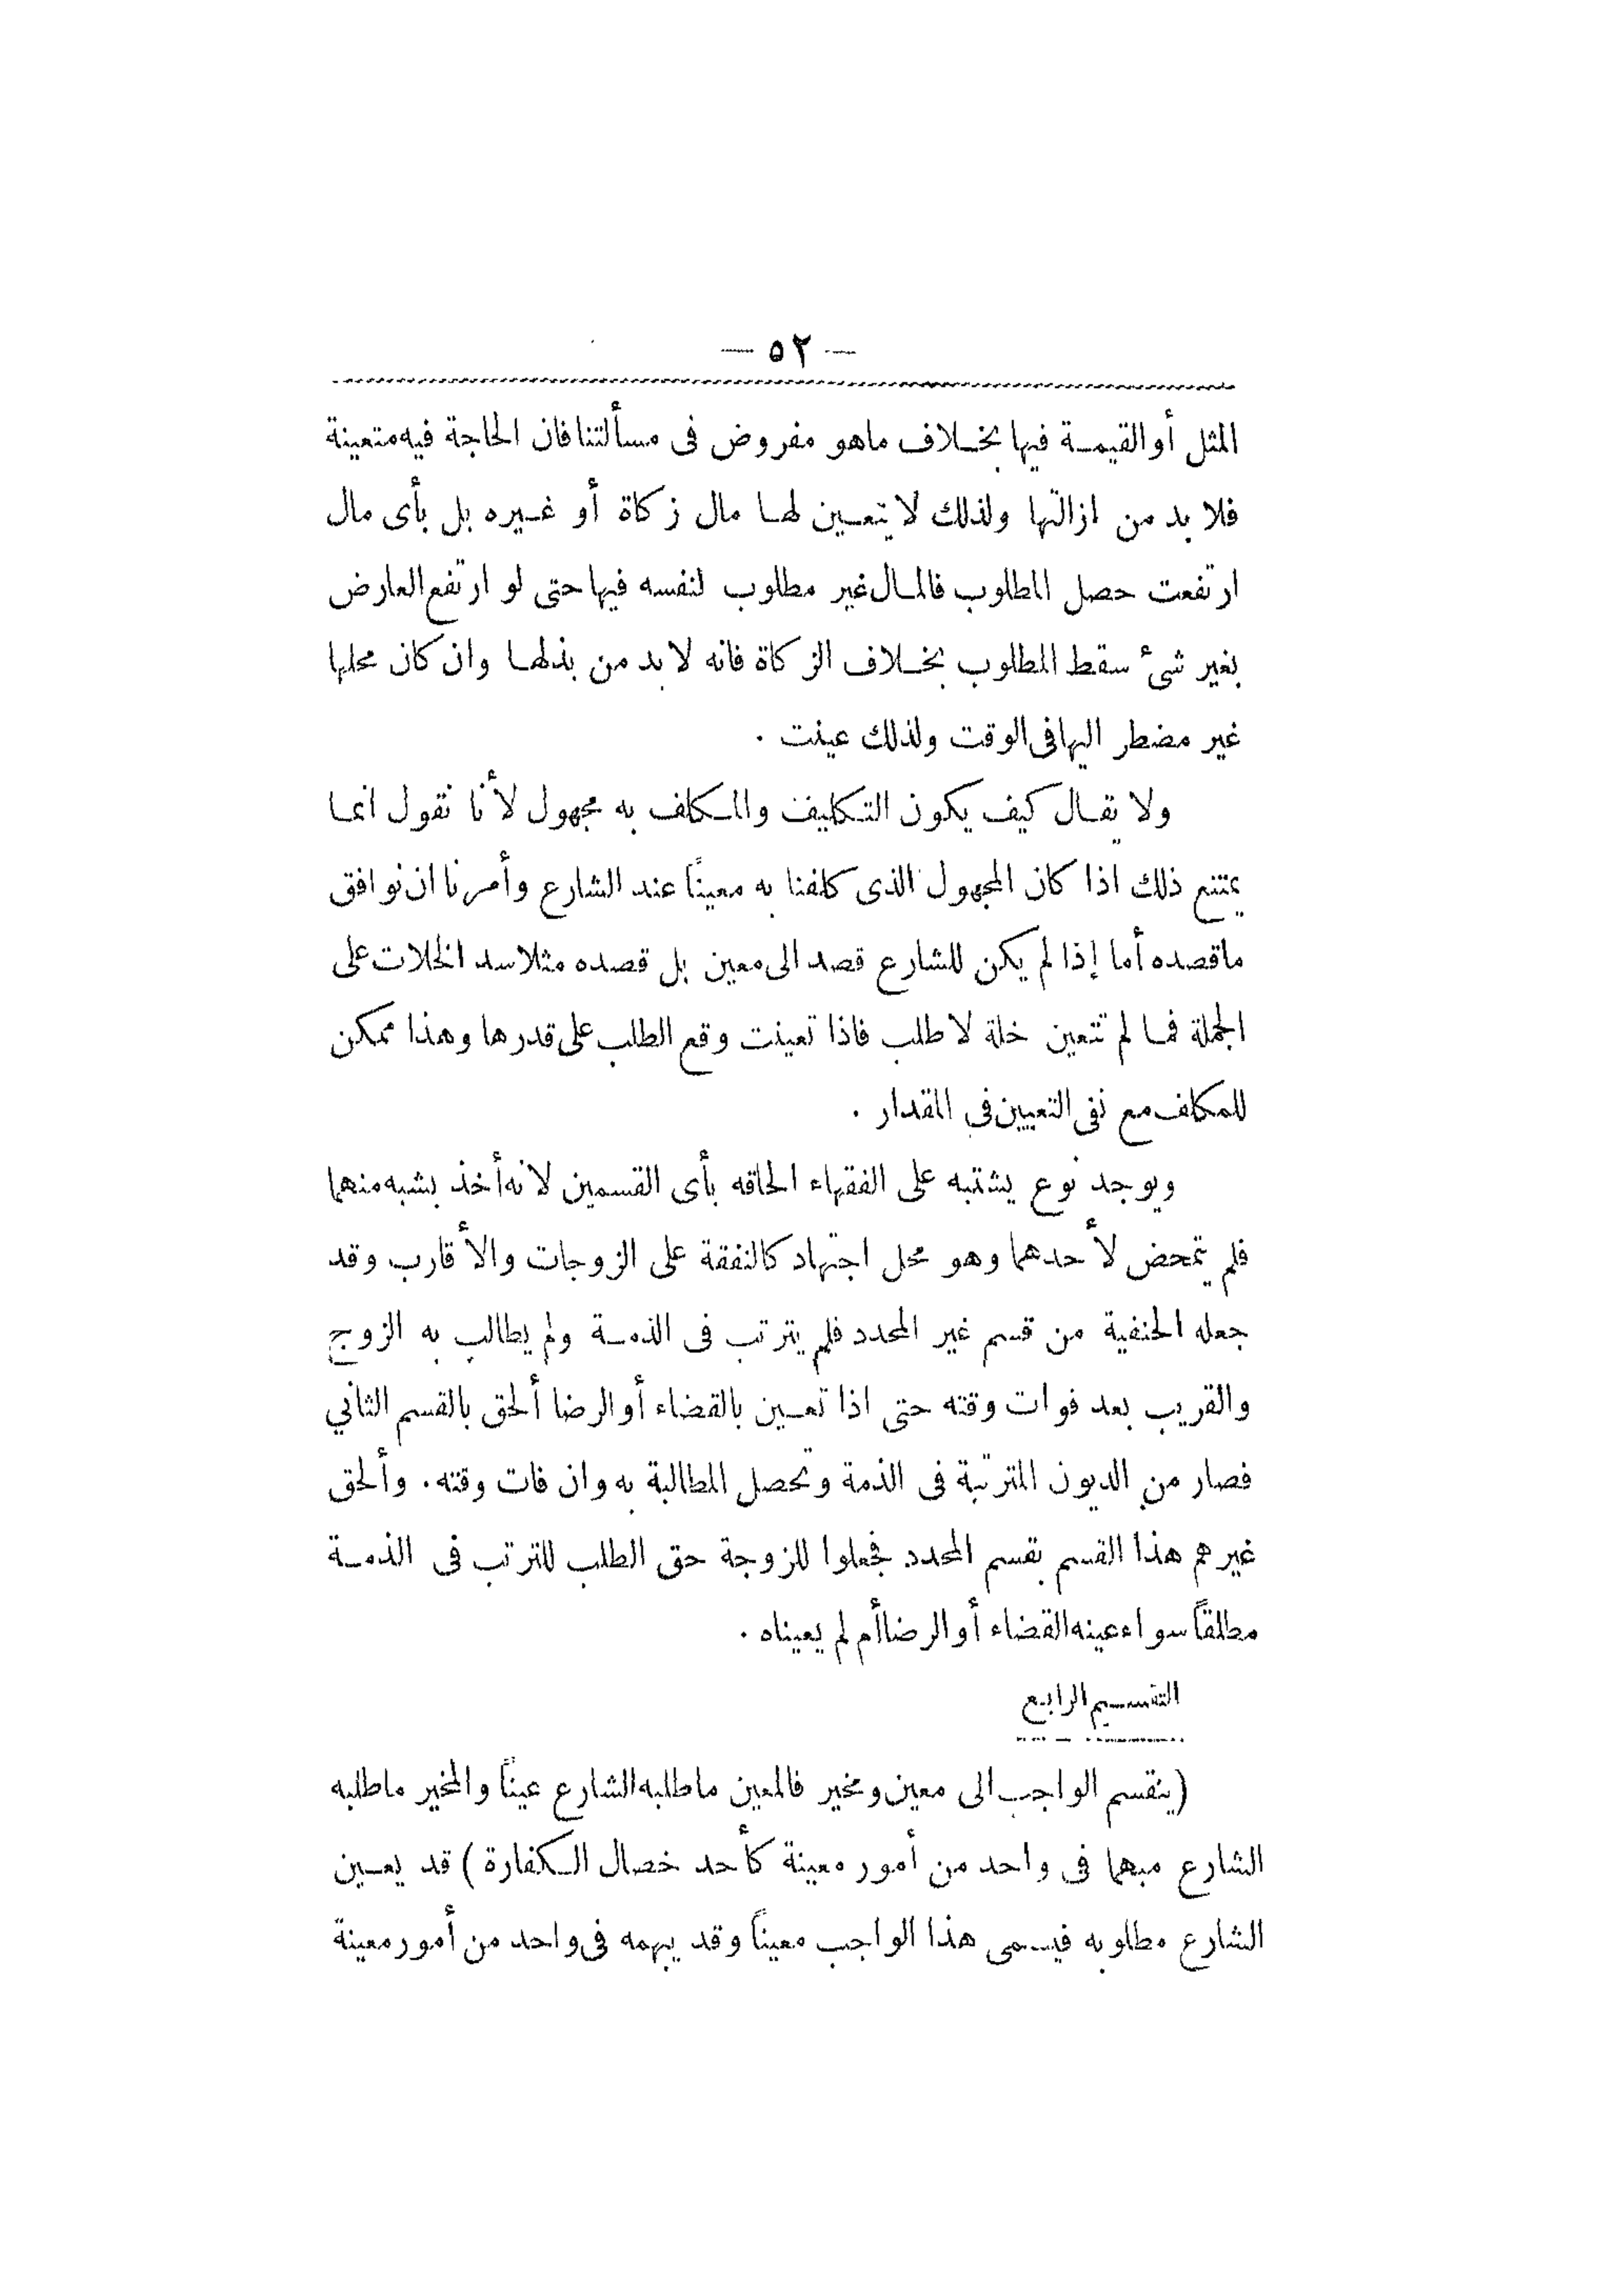 — ٥٢ —
المثل أو القيمة فيها بخلاف ماهو مفروض فى مسألتنا فان الحاجة فيه متعينة
فلا بد من ازالتها ولذلك لا يتعين لها مال زكاة أو غيره بل بأى مال
ارتفعت حصل المطلوب فالمال غير مطلوب لنفسه فيها حتى لو ارتفع العارض
بغير شىء سقط المطلوب بخلاف الزكاة فانه لا بد من بذلها وان كان محلها
غير مضطر اليها فى الوقت ولذلك عينت .
ولا يقال كيف يكون التكليف والمكلف به مجهول لأنا نقول انما
يمتنع ذلك اذا كان المجهول الذى كلفنا به معيناً عند الشارع وأمرنا ان نوافق
ماقصده أما إذا لم يكن للشارع قصد الى معين بل قصده مثلا سد الخلات على
الجملة فما لم تتعين خلة لا طلب فاذا تعينت وقع الطلب على قدرها وهذا ممكن
للمكلف مع نفى التعيين فى المقدار .
ويوجد نوع يشتبه على الفقهاء الحاقه بأى القسمين لانه أخذ بشبه منهما
فلم يتمحض لأحدهما وهو محل اجتهاد كالنفقة على الزوجات والأقارب وقد
جعله الحنفية من قسم غير المحدد فلم يترتب فى الذمة ولم يطالب به الزوج
والقريب بعد فوات وقته حتى اذا تعين بالقضاء أو الرضا ألحق بالقسم الثاني
فصار من الديون المترتبة فى الذمة وتحصل المطالبة به وان فات وقته . وألحق
غيرهم هذا القسم بقسم المحدد فجعلوا للزوجة حق الطلب للترتب فى الذمة
مطلقاً سواء عينه القضاء أو الرضا أم لم يعيناه .
التقسيم الرابع
(ينقسم الواجب الى معين ومخير فالمعين ماطلبه الشارع عيناً والمخير ماطلبه
الشارع مبهما فى واحد من أمور معينة كأحد خصال الكفارة) قد يعين
الشارع مطلوبه فيسمى هذا الواجب معيناً وقد يبهمه فى واحد من أمور معينة